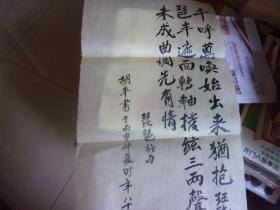 千呼萬喚始出来猶抱琵
琶半遮面轉軸撥絃三兩聲
未成曲调先有情
琵琶行句
胡平書于丙申仲夏时年八十